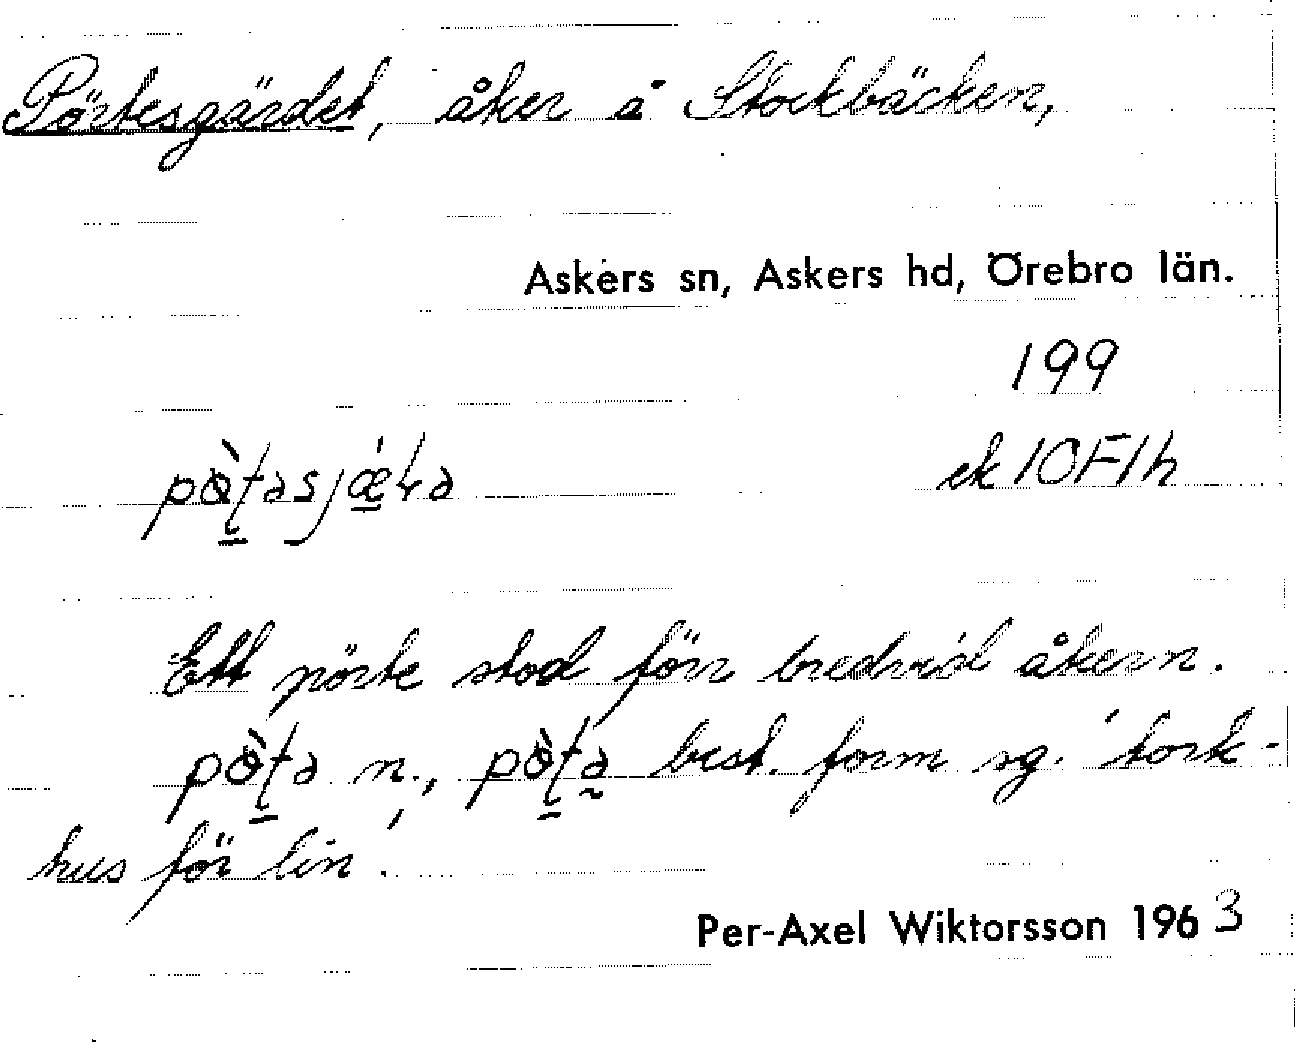 Pörtesgärdet, åker å Stockbäcken,
Askers sn, Askers hd, Örebro län.
199
pò̱ʈəsjǽ̱ɽə ek 10F1h
Ett pörte stod förr bredvid åkern.
pò̱ʈə n., pò̱ʈə̰ best. form sg. 'tork-
hus för lin'.
Per-Axel Wiktorsson 1963